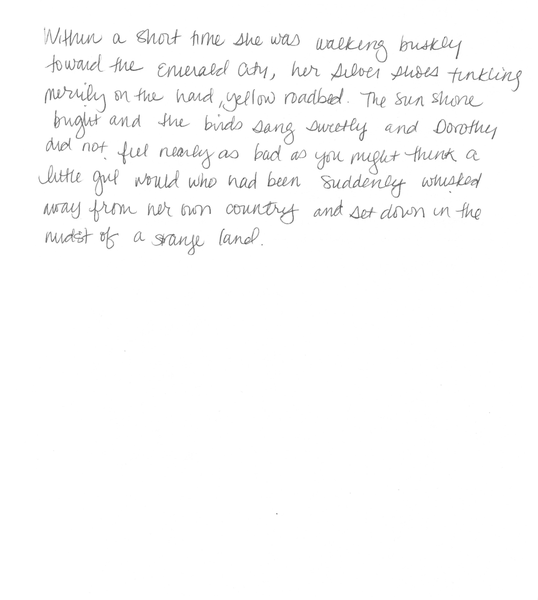 Within a short time she was walking briskly
toward the Emerald City, her Silver Shoes tinkling
merrily on the hard, yellow roadbed. The sun shone
bright and the birds sang sweetly and Dorothy
did not feel nearly as bad as you might think a
little girl would who had been suddenly whisked
away from her own country and set down in the
midst of a srange land.